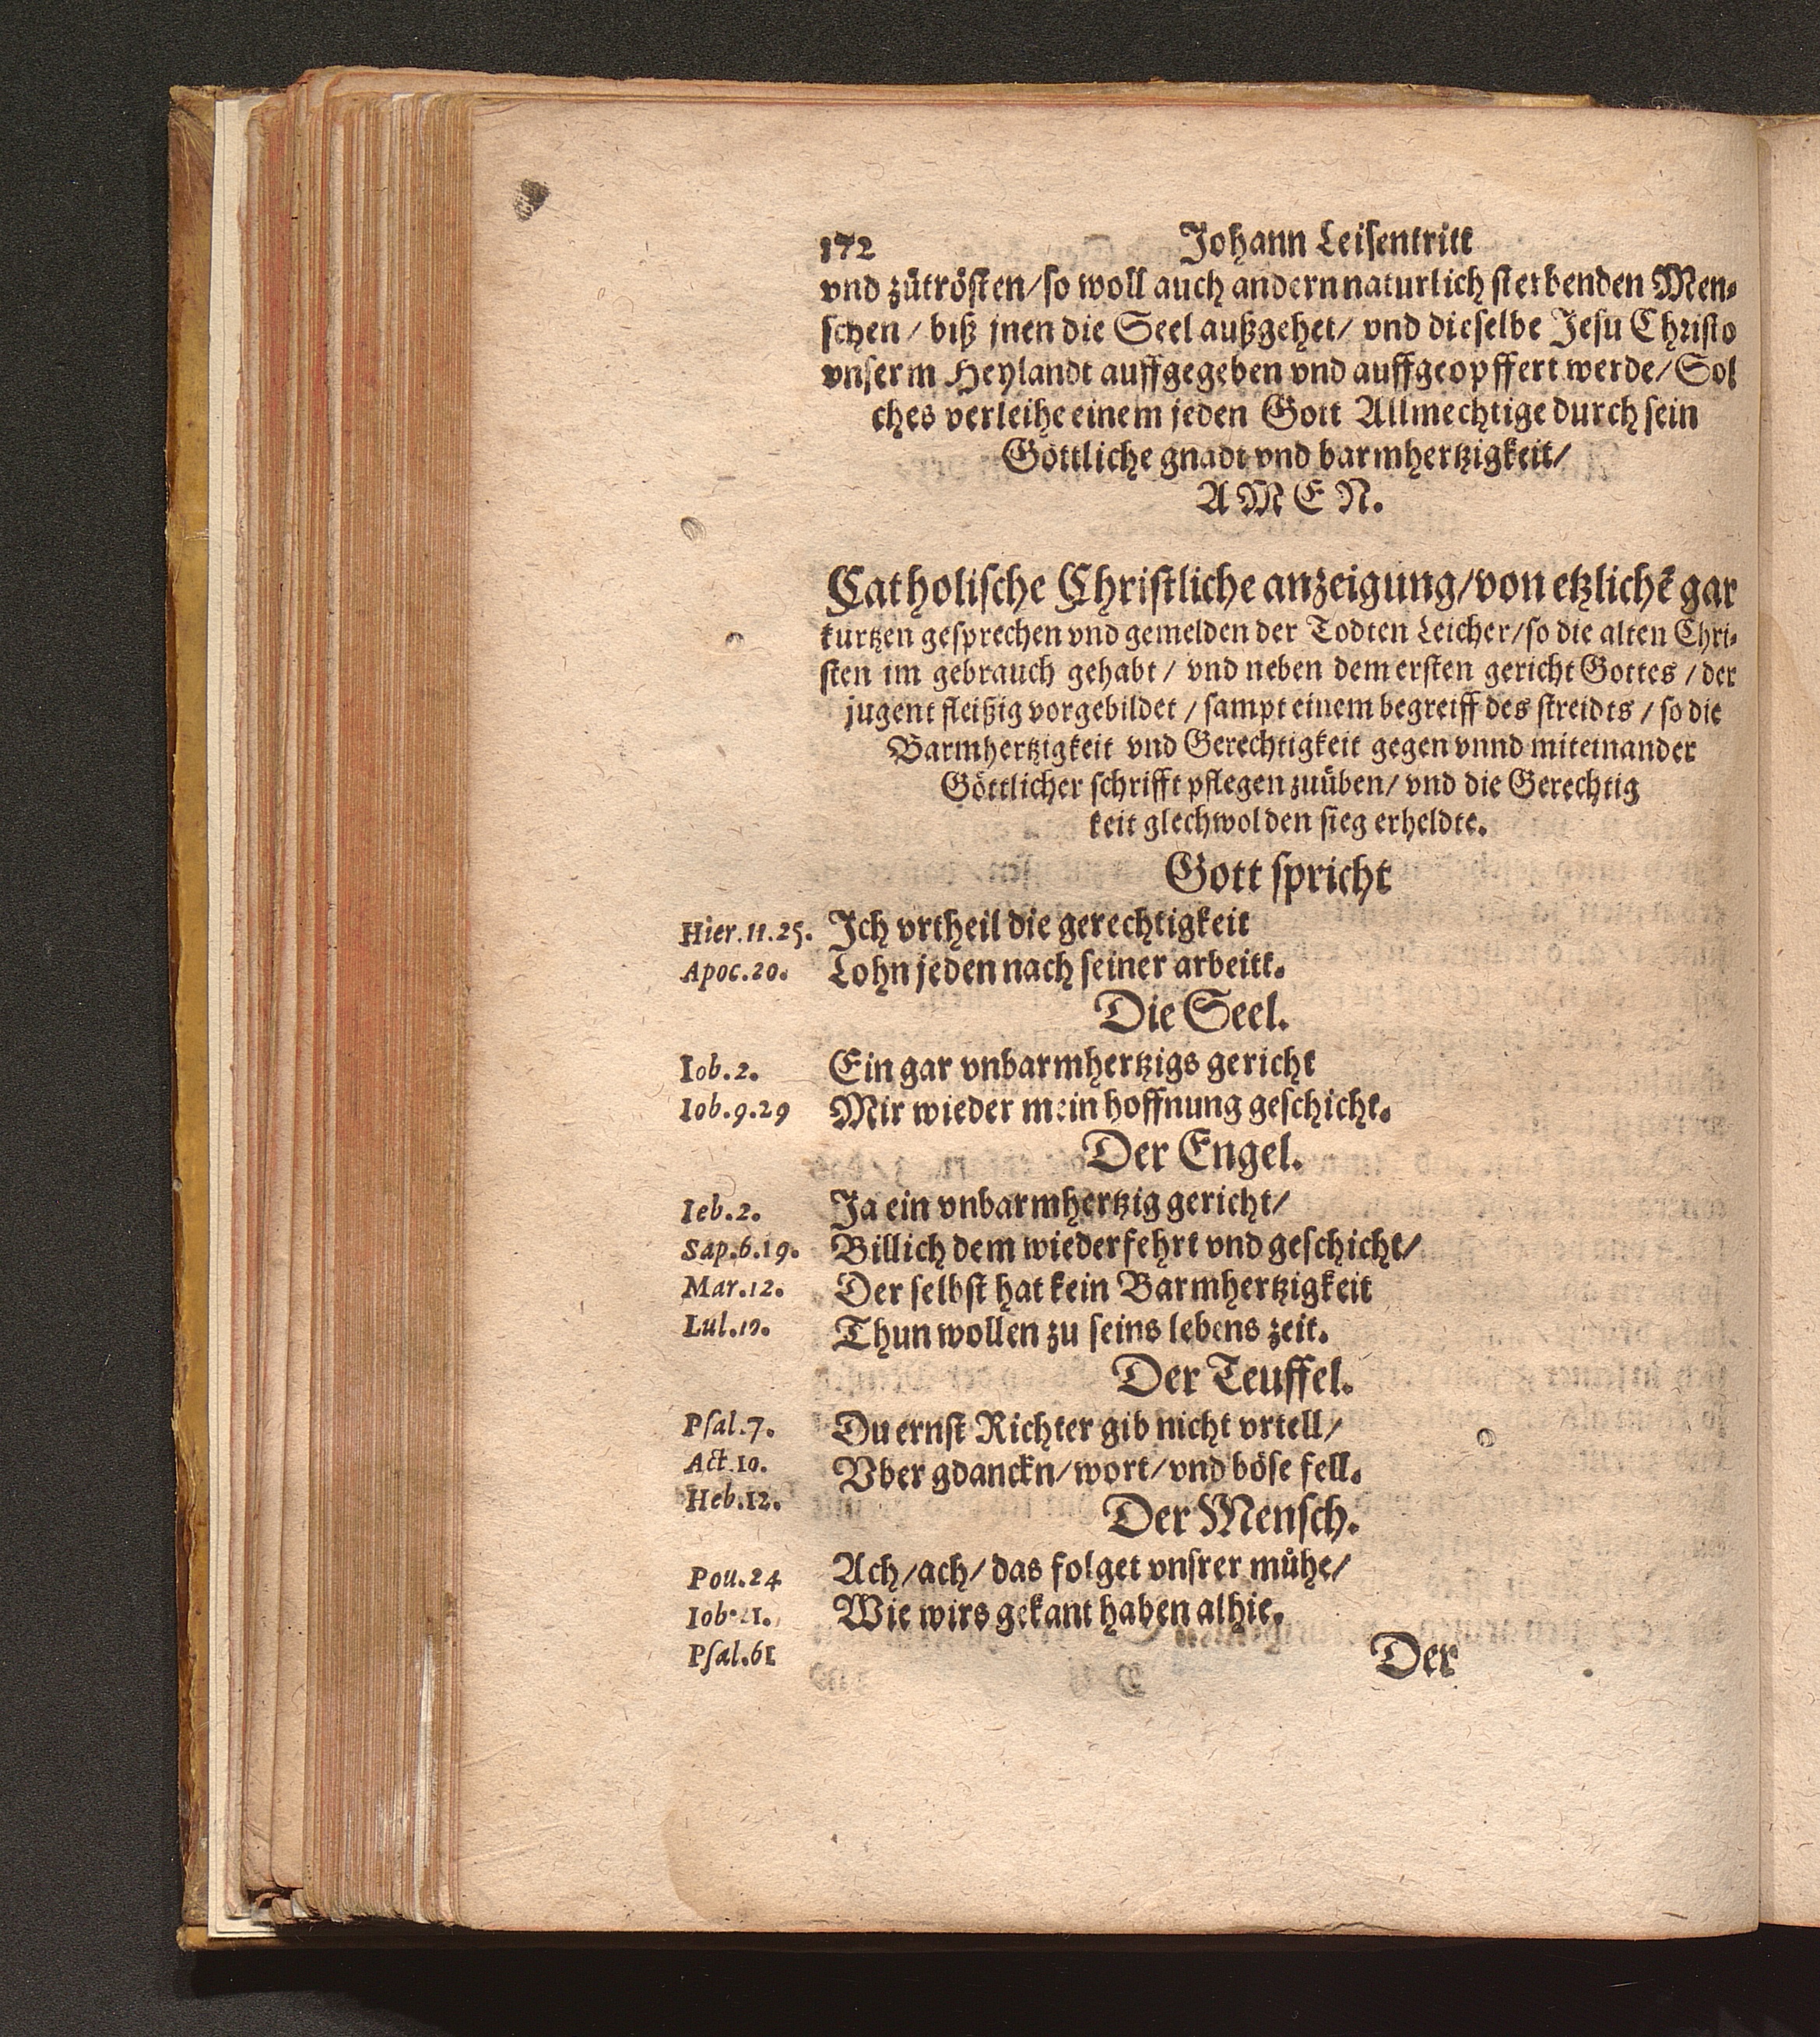 172 Johann Leisentritt
vnd zütrösten/so woll auch andern naturlich sterbenden Men⸗
schen/ biß jnen die Seel außgehet/ vnd dieselbe Jesu Christo
vnserm Heylandt auffgegeben vnd auffgeopffert werde/Sol
ches verleihe einem jeden Gott Allmechtige durch sein
Göttliche gnadt vnd barmhertzigkeit/
AMEN.
Catholische Christliche anzeigung/von etzlichē gar
kurtzen gesprechen vnd gemelden der Todten Leicher/so die alten Chri⸗
sten im gebrauch gehabt/ vnd neben dem ersten gericht Gottes/der
jugent fleißig vorgebildet/sampt einem begreiff des streidts/so die
Barmhertzigkeit vnd Gerechtigkeit gegen vnnd miteinander
Göttlicher schrifft pflegen zuüben/ vnd die Gerechtig
keit glechwol den sieg erheldte.
Gott spricht
Hier.11.25. Jch vrtheil die gerechtigkeit
Apoc.20. Lohn jeden nach seiner arbeitt.
Die Seel.
Iob.2. Ein gar vnbarmhertzigs gericht
Iob.9.29 Mir wieder mein hoffnung geschicht.
Der Engel.
Ieb.2. Ja ein vnbarmhertzig gericht/
Sap.6.19. Billich dem wiederfehrt vnd geschicht/
Mar.12. Der selbst hat kein Barmhertzigkeit
Lul.10. Thun wollen zu seins lebens zeit.
Der Teuffel.
Psal.7. Du ernst Richter gib nicht vrtell/
Act.10. Vber gdanckn/wort/vnd böse fell.
Heb.12.
Der Mensch.
Pou.24 Ach/ach/ das folget vnsrer můhe/
Iob.21. Wie wirs gekant haben alhie.
Psal.61
Der